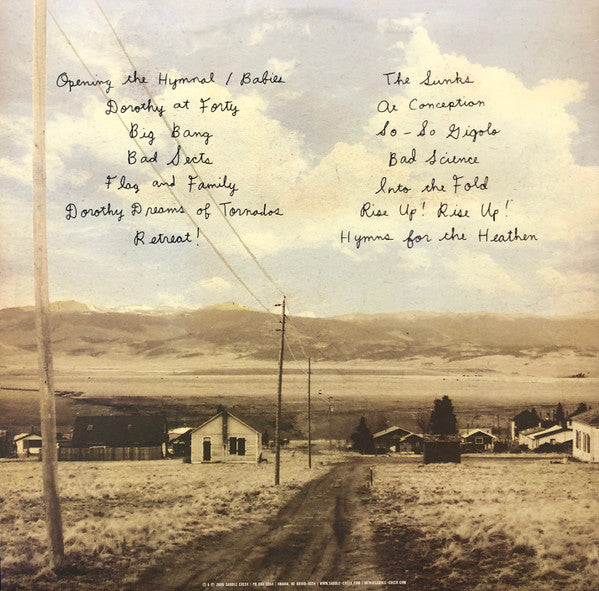 Opening the Hymnal / Babies
Dorothy at Forty
Big Bang
Bad Sects
Flag and Family
Dorothy Dreams of Tornados
Retreat!
The Sunks
At Conception
So-So Gigolo
Bad Science
Into the Fold
Rise Up! Rise Up!
Hymns for the Heathen
2006 SADDLE CREEK | PO BOX 8554 | OMAHA, NE 68108-0554 | WWW.SADDLE-CREEK.COM |